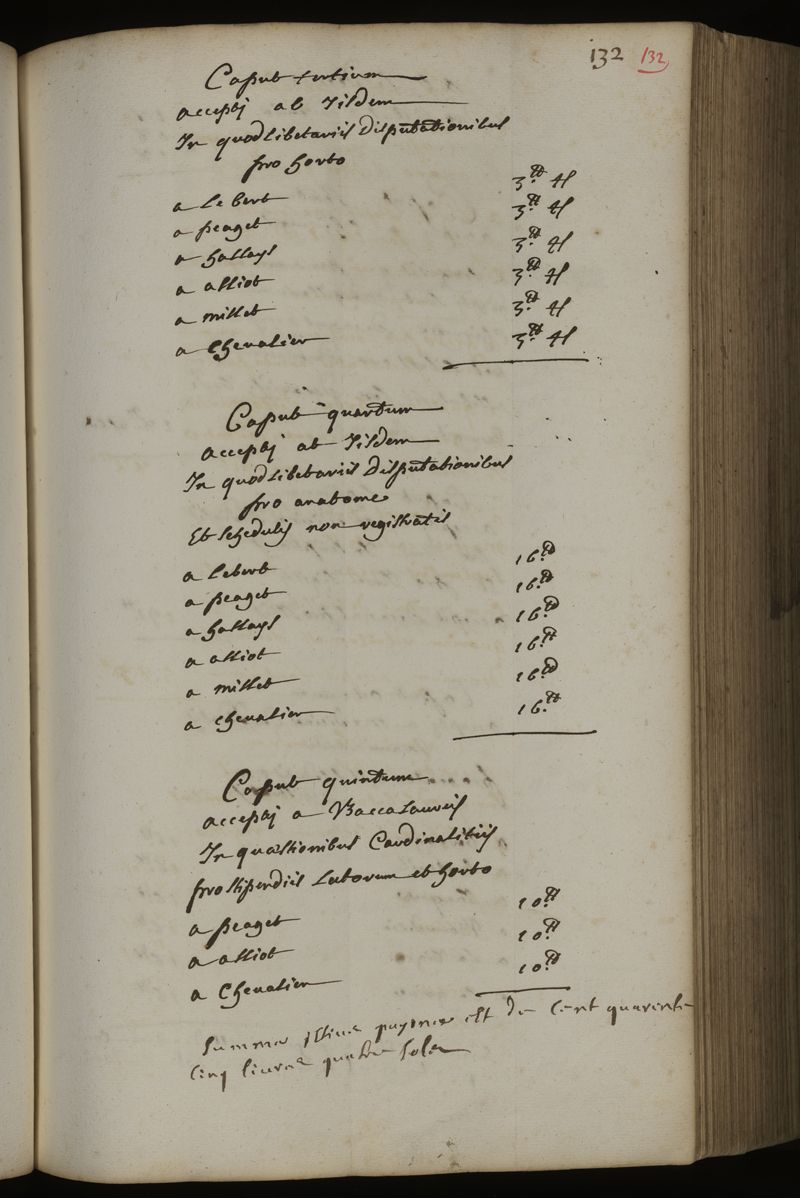 132 132
Caput tertium
accepj ab iisdem
In quodlibetariis disputationibus
pro horto
a le bert 3.tt 4s
a peaget 3.tt 4s
a hallays 3.tt 4s
a alliot 3.tt 4s
a millet 3.tt 4s
a Chevalier 3.tt 4s
Caput quartum
accepj ab iisdem
In quodlibetariis disputationibus
pro anatome
Et schedulis non registratis
a lebert 16.tt
a peaget 16.tt
a hallays 16.tt
a alliot 16.tt
a millet 16.tt
a chevalier 16.tt
Caput quintum
accepj a Baccalaureis
In quæstionibus Cardinalitiis
pro stipendiis lectorum et horto
a peaget 10.tt
a alliot 10.tt
a Chevalier 10.tt
Summa istius paginae est de cent quarente
cinq livres quatre solz